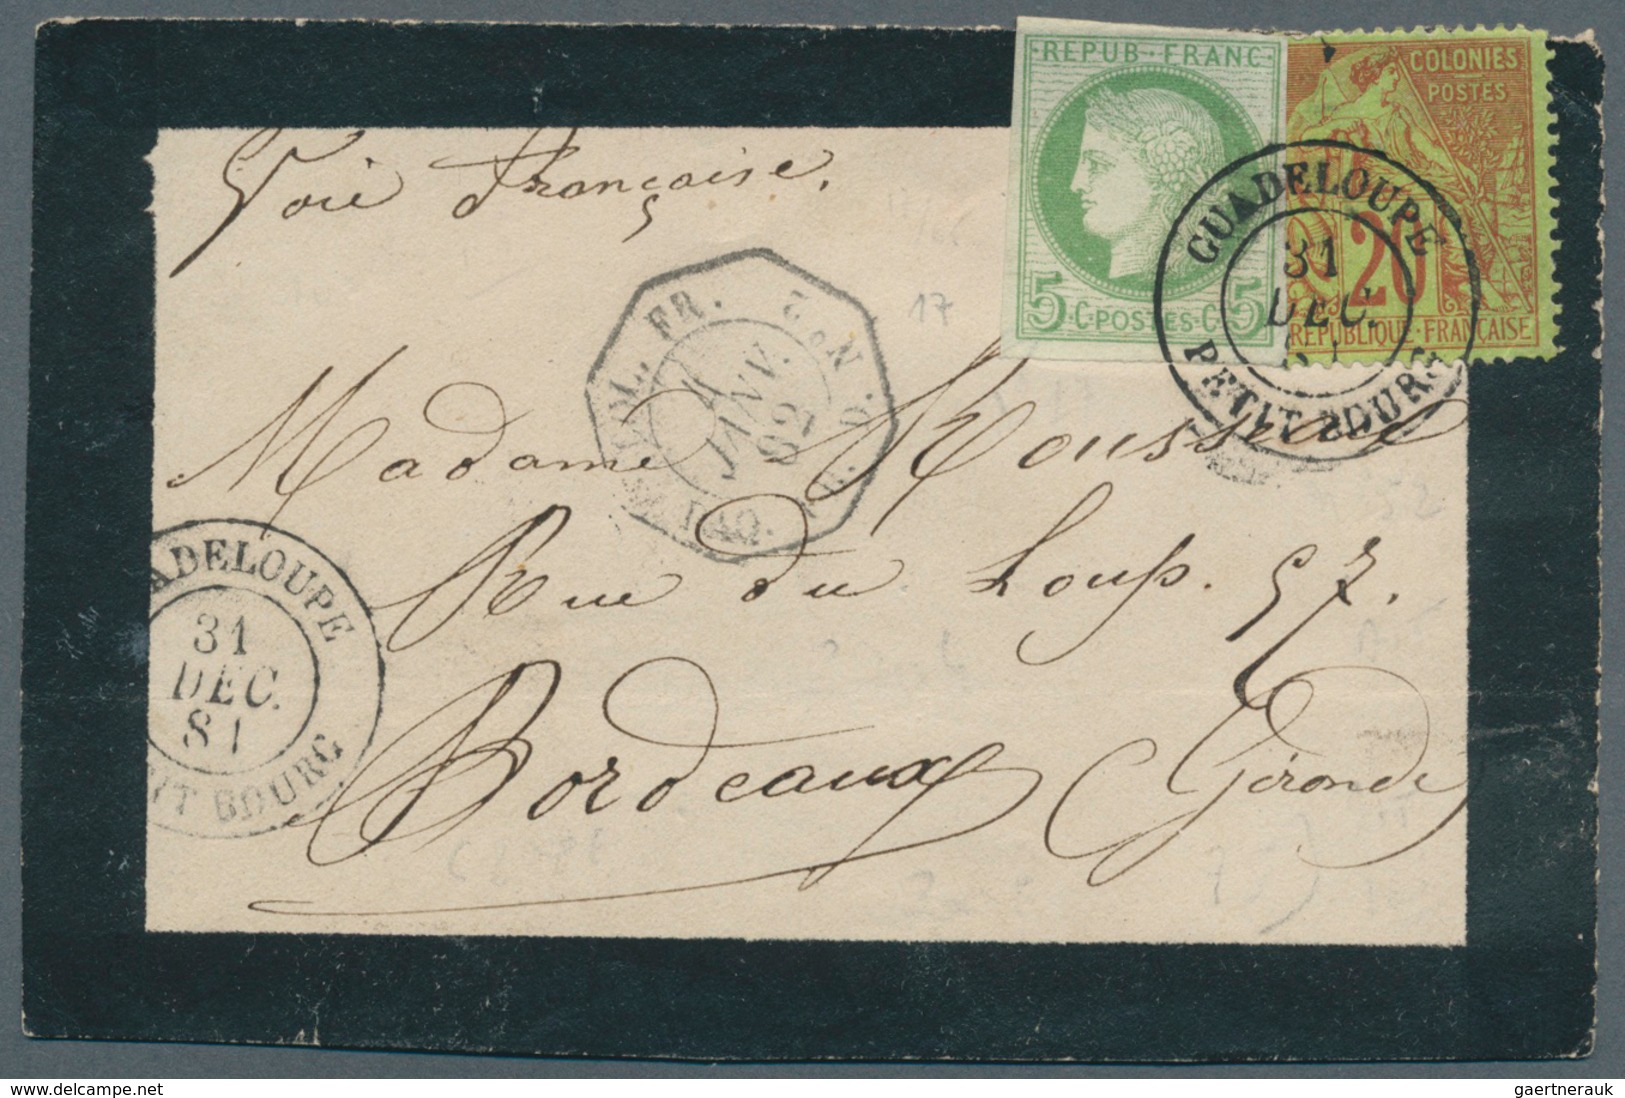 REPUB·FRANC·
5 ·C·POSTES·C· 5
COLONIES
POSTES
20
REPUBLIQUE FRANÇAISE
Voie Française,
GUADELOUPE
31
DEC.
PETIT BOURG
COL. FR.
PAQ. FR.
4
JANV.
82
17
Madame Rousseau
Rue du Loup. 57.
Bordeaux Gironde
ADELOUPE
31
DEC.
81
IT BOURG
delcampe.net
gaertnerauk